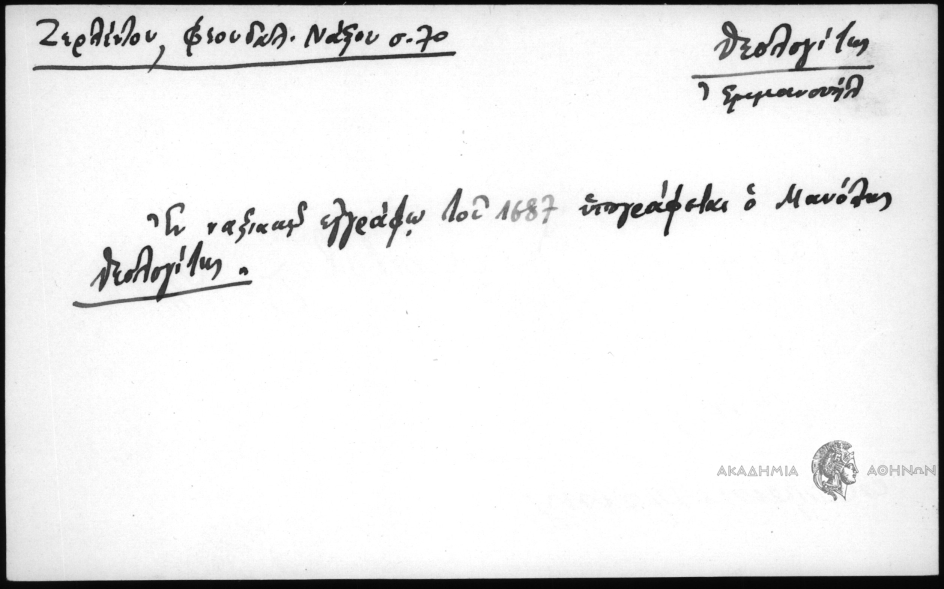 Ζερλέντου, Φεουδαλ. Νάξου σ. 70
Θεολογίτης
Ἐμμανουήλ
Ἐν ναξιακῷ ἐγγράφῳ τοῦ 1687 ὑπογράφεται ὁ Μανόλης
Θεολογίτης.
ΑΚΑΔΗΜΙΑ ΑΘΗΝΩΝ